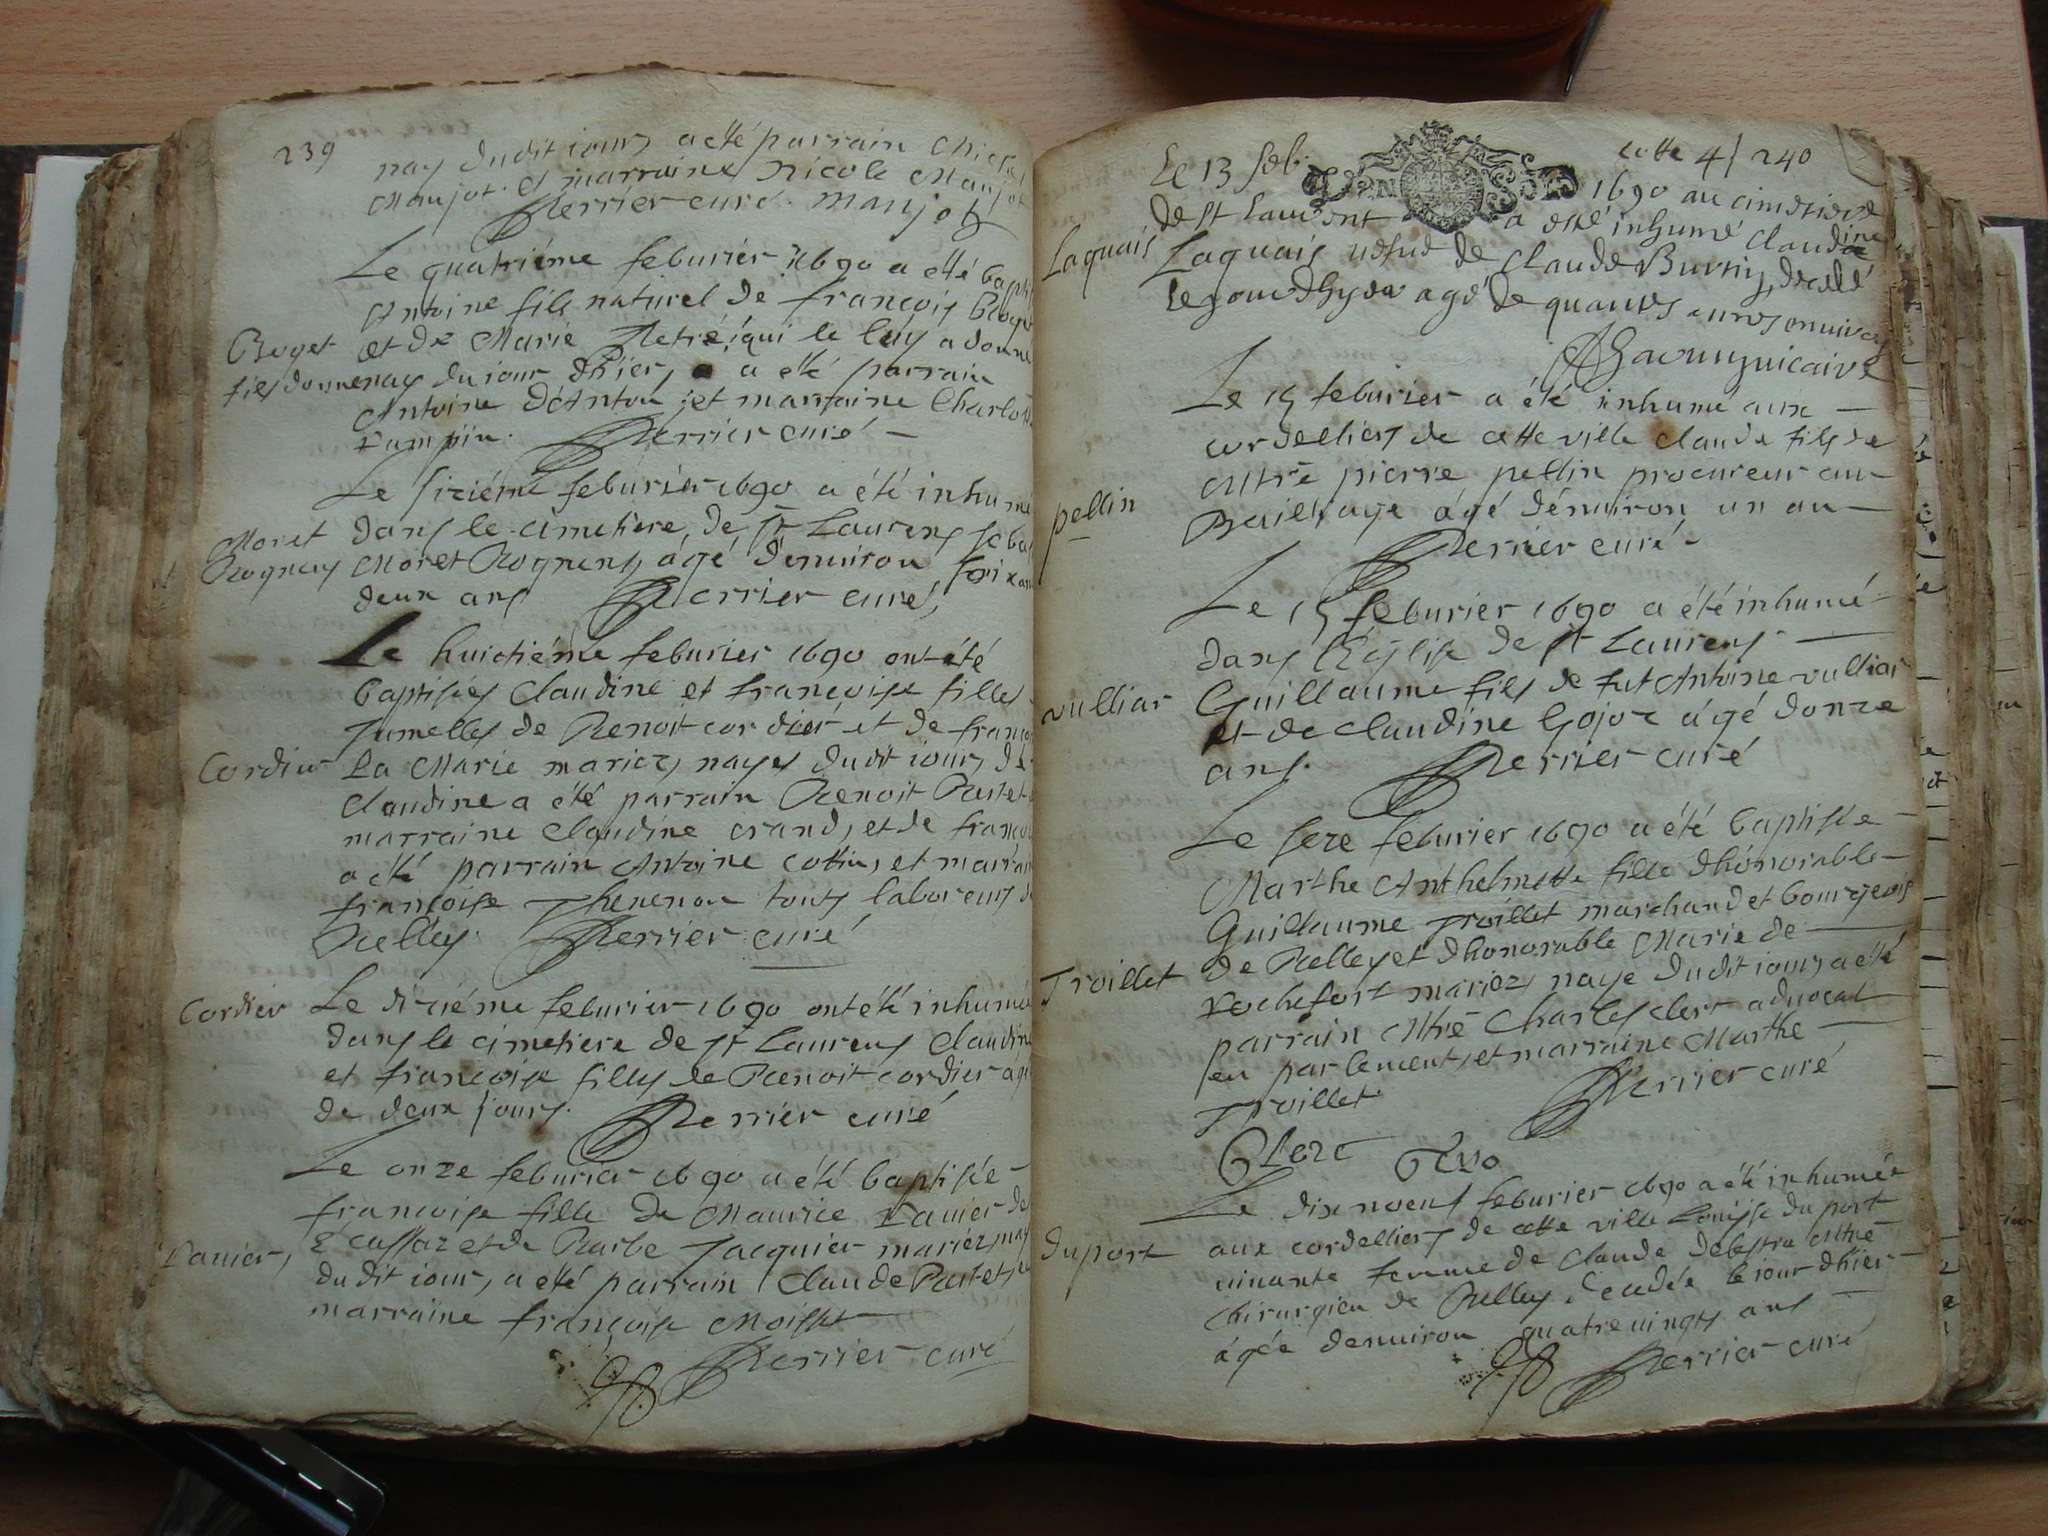 239
nay dudit jour, a été parrain
Maujot et marraine Nicole
Perrier curé. Maujot
Le quatriéme feburier 1690 a été
Antoine fils naturel de françois
Boget
et de Marie qui le luy a donné
nay du jour d'hier, a été parrain
Antoine et marraine
Perrier curé
Le siziéme feburier 1690 a été inhumé
Moret
dans le cimetiere de st Laurens
Rognens
Moret Rognens, âgé d'enuiron
deux ans Perrier curé
Le huictiéme feburier 1690 ont été
baptisées Claudine et françoise filles
jumelles de Benoit cordier et de
Cordier
La Marie mariez, nayes dudit jour, de
Claudine a été parrain Benoit
marraine Claudine crand, et de
a été parrain Antoine cottin, et
françoise Thevenon tous laboreurs
Belley. Perrier curé
Cordier
Le diziéme feburier 1690 ont été inhumées
dans le cimetiere de st Laurens
et françoise filles de Benoit cordier
de deux jours. Perrier curé
Le onze feburier 1690 a été baptisée
françoise fille de Maurice Panier
Panier,
et de Barbe Jacquier mariez,
dudit jour, a été parrain Claude
marraine françoise
Perrier curé
cotte 4 / 240
Le 13 feb. 1690 au cimetiere
de st Laurent a esté inhumé Claudine
Laquais
Laquais uefue de Claude
le jour dhyer agé de
vicaire
Le 15 feburier a été inhumé aux
cordelliers de cette ville claude fils de
Mtre pierre pellin procureur au
pellin
Bailliage âgé d'énuiron un an
Perrier curé
Le 15 feburier 1690 a été inhumé
dans l'Eglise de st Laurens
vulliar
Guillaume fils de fut Antoine vulliar
et de Claudine Gojoz âgé donze
ans. Perrier curé
Le seze feburier 1690 a été baptisée
Marthe Anthelmette fille dhónorable
Guillaume Troillet marchand et bourgeois
de Belley et dhonorable Marie de
Troillet
rochefort mariez, naye dudit jour, a été
parrain Mtre Charles clerc aduocat
en parlement, et marraine Marthe
Troillet. Perrier curé
Clerc
Le dix noeuf feburier 1690 a été inhumée
aux cordelliers de cette ville Louisse du port
duport
uiuante femme de Claude Mtre
chirurgien de Belley décedée le jour dhier
âgée denuiron quatreuingts ans
Perrier curé